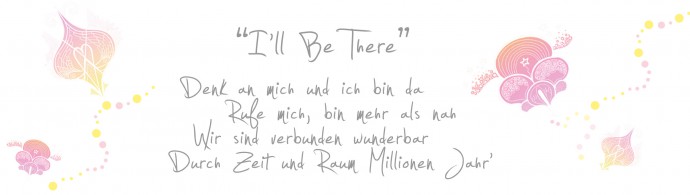 “I'll Be There”
Denk an mich und ich bin da
Rufe mich, bin mehr als nah
Wir sind verbunden wunderbar
Durch Zeit und Raum Millionen Jahr'